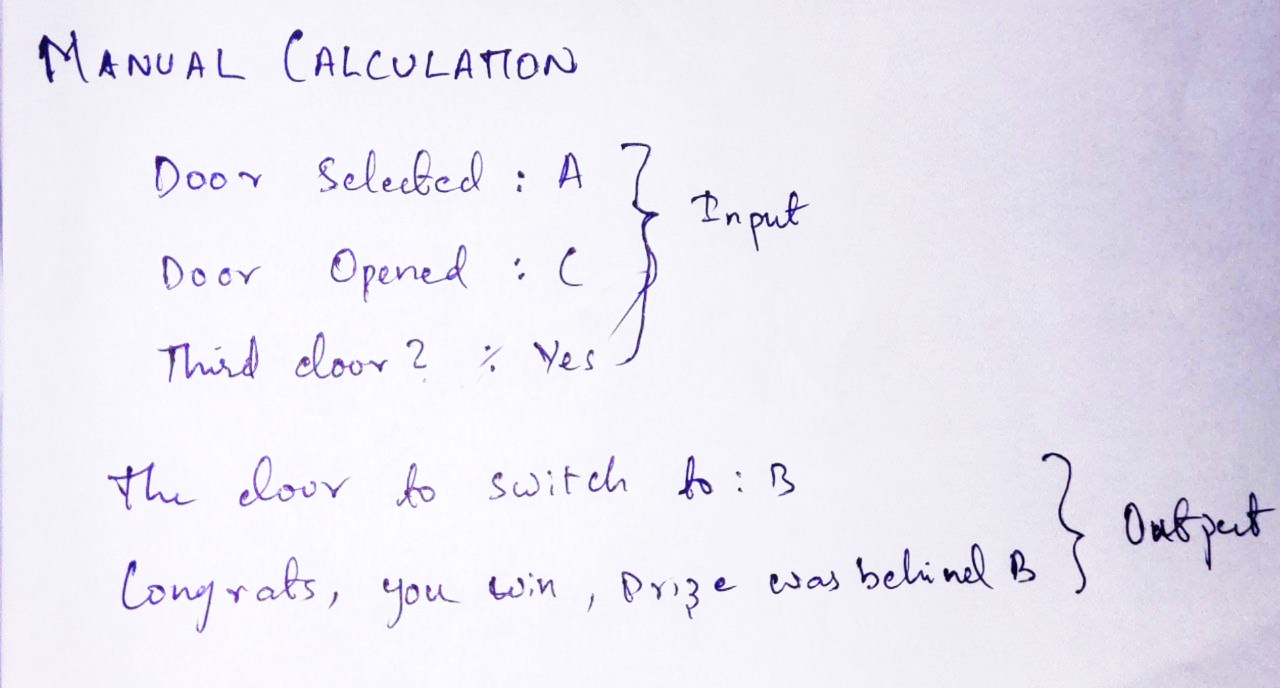 MANUAL CALCULATION
Door Selected : A
Input
Door Opened : C
Third door? : Yes
The door to switch to : B
Output
Congrats, you win, Prize was behind B